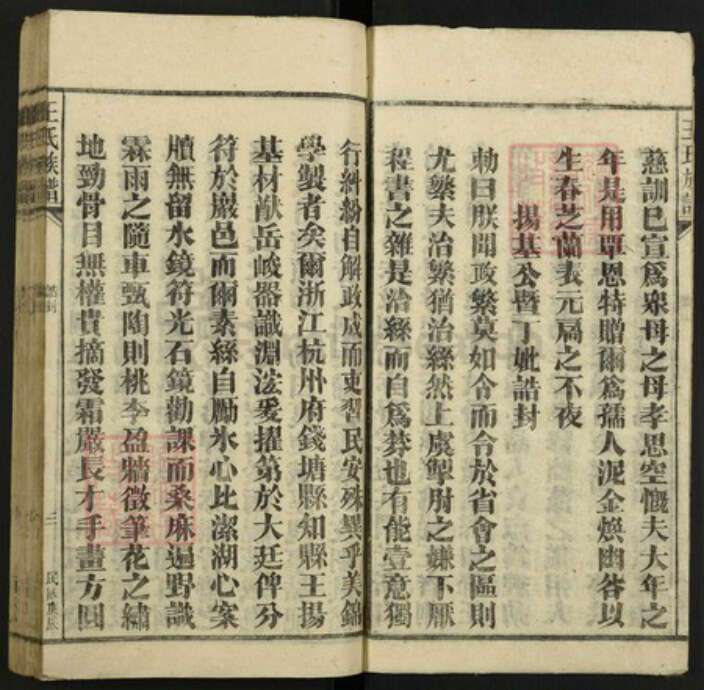 王氏族譜
慈訓巳宣爲衆母之母孝思空慨夫大年之
年是用覃恩特贈爾爲孺人泥金煥幽谷以
生春芝蘭表元扃之不夜
揚基公暨丁妣誥封
勅曰朕聞政繁莫如令而令於省會之區則
尤繁夫治繁猶治絲然上虞掣肘之嫌下厭
程書之雜是治絲而自爲棼也有能壹意獨
行糾紛自解政成而吏習民安殊異乎美錦
學製者矣爾浙江杭州府錢塘縣知縣王揚
基材猷岳峻器識淵泫爰擢第於大廷俾分
符於巖邑而爾素絲自勵氷心比潔湖心案
牘無留水鏡符光石鏡勸課而桑麻遍野識
霖雨之隨車甄陶則桃李盈牆徵筆花之繡
地勁骨目無權貴摘發霜嚴長才手畫方圓
王氏族譜
誥封
三